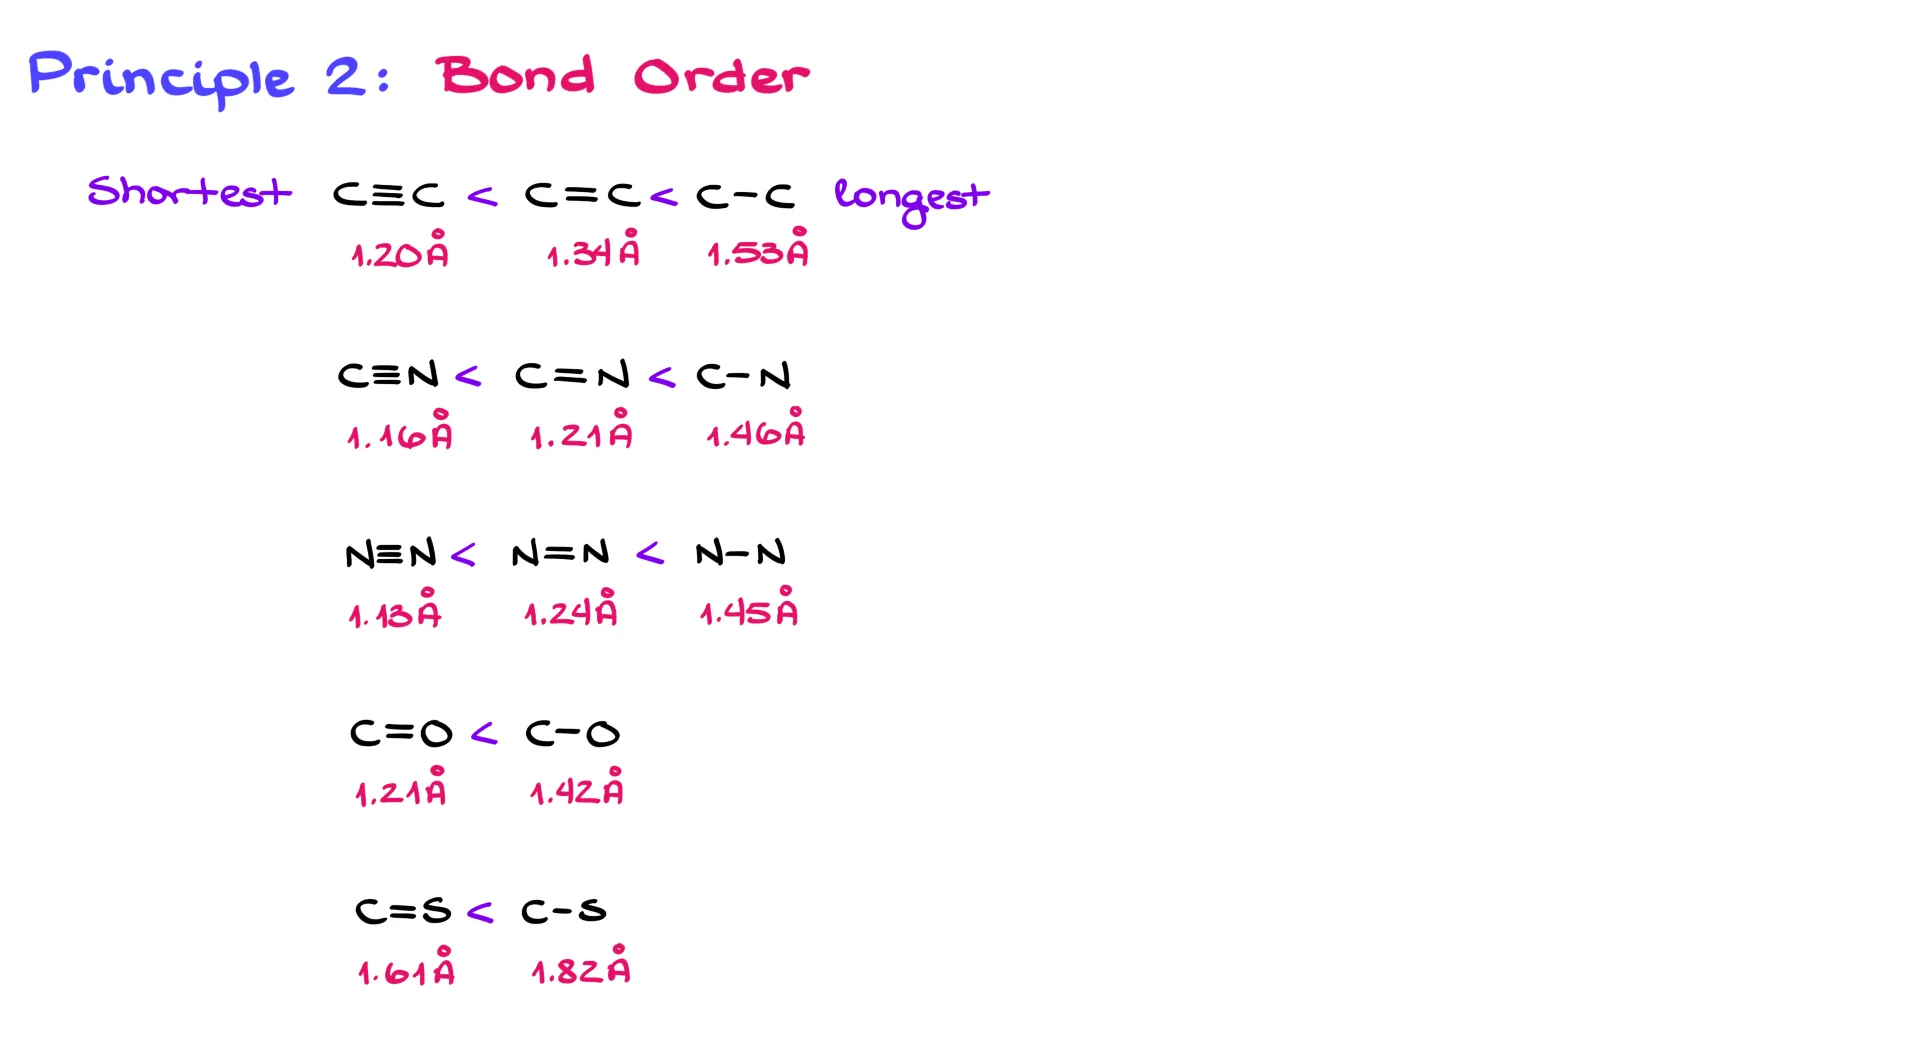 Principle 2: Bond Order
Shortest C≡C < C=C < C-C longest
1.20Å 1.34Å 1.53Å
C≡N < C=N < C-N
1.16Å 1.21Å 1.46Å
N≡N < N=N < N-N
1.13Å 1.24Å 1.45Å
C=O < C-O
1.21Å 1.42Å
C=S < C-S
1.61Å 1.82Å